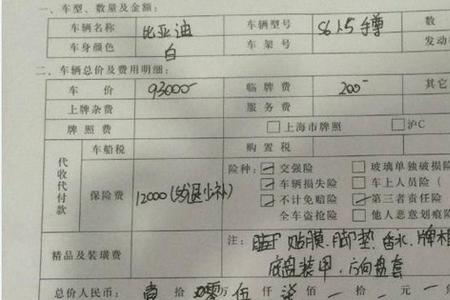 一、车型、数量及金额：
车辆名称 比亚迪 车辆型号 S6 1.5 尊 数
车身颜色 白 车架号 发动
二、车辆总价及费用明细：
车价 93000 临牌费 200 其它
上牌杂费 服务费
牌照费 □上海市牌照 □沪C
代收代付款
车船税 购置税
保险费 12000（多退少补） 险种：☑交强险 □玻璃单独破损险
☑车辆损失险 □车上人员险（
☑不计免赔险 ☑第三者责任险
全车盗抢险 □他人恶意划痕险
精品及装潢费 注： 贴膜.脚垫.香水.牌框
底盘装甲.方向盘套
总价人民币： 壹拾零万伍仟柒佰